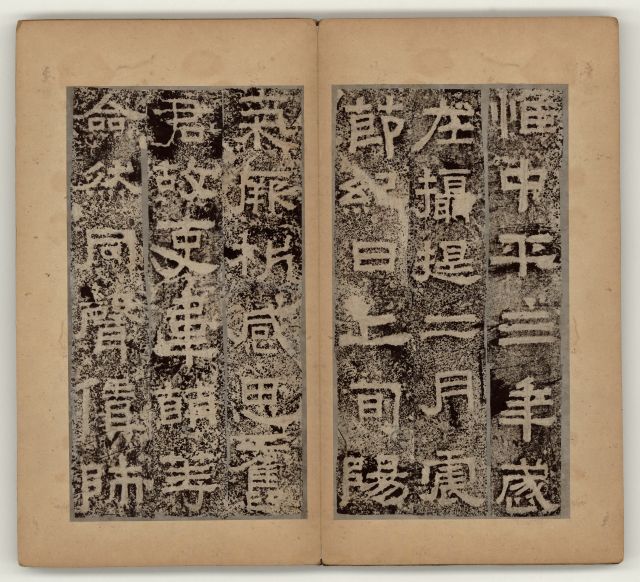 惟中平三年歲
在攝提二月震
節紀日上旬陽
氣厥析感思舊
君故吏韋萌等
僉然同聲賃師